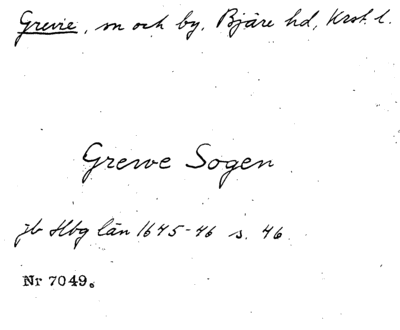 Grevie, sn och by. Bjäre hd, Krst. l.
Grewe Sogen
jb Hbg län 1645-46 s. 46.
Nr 7049.